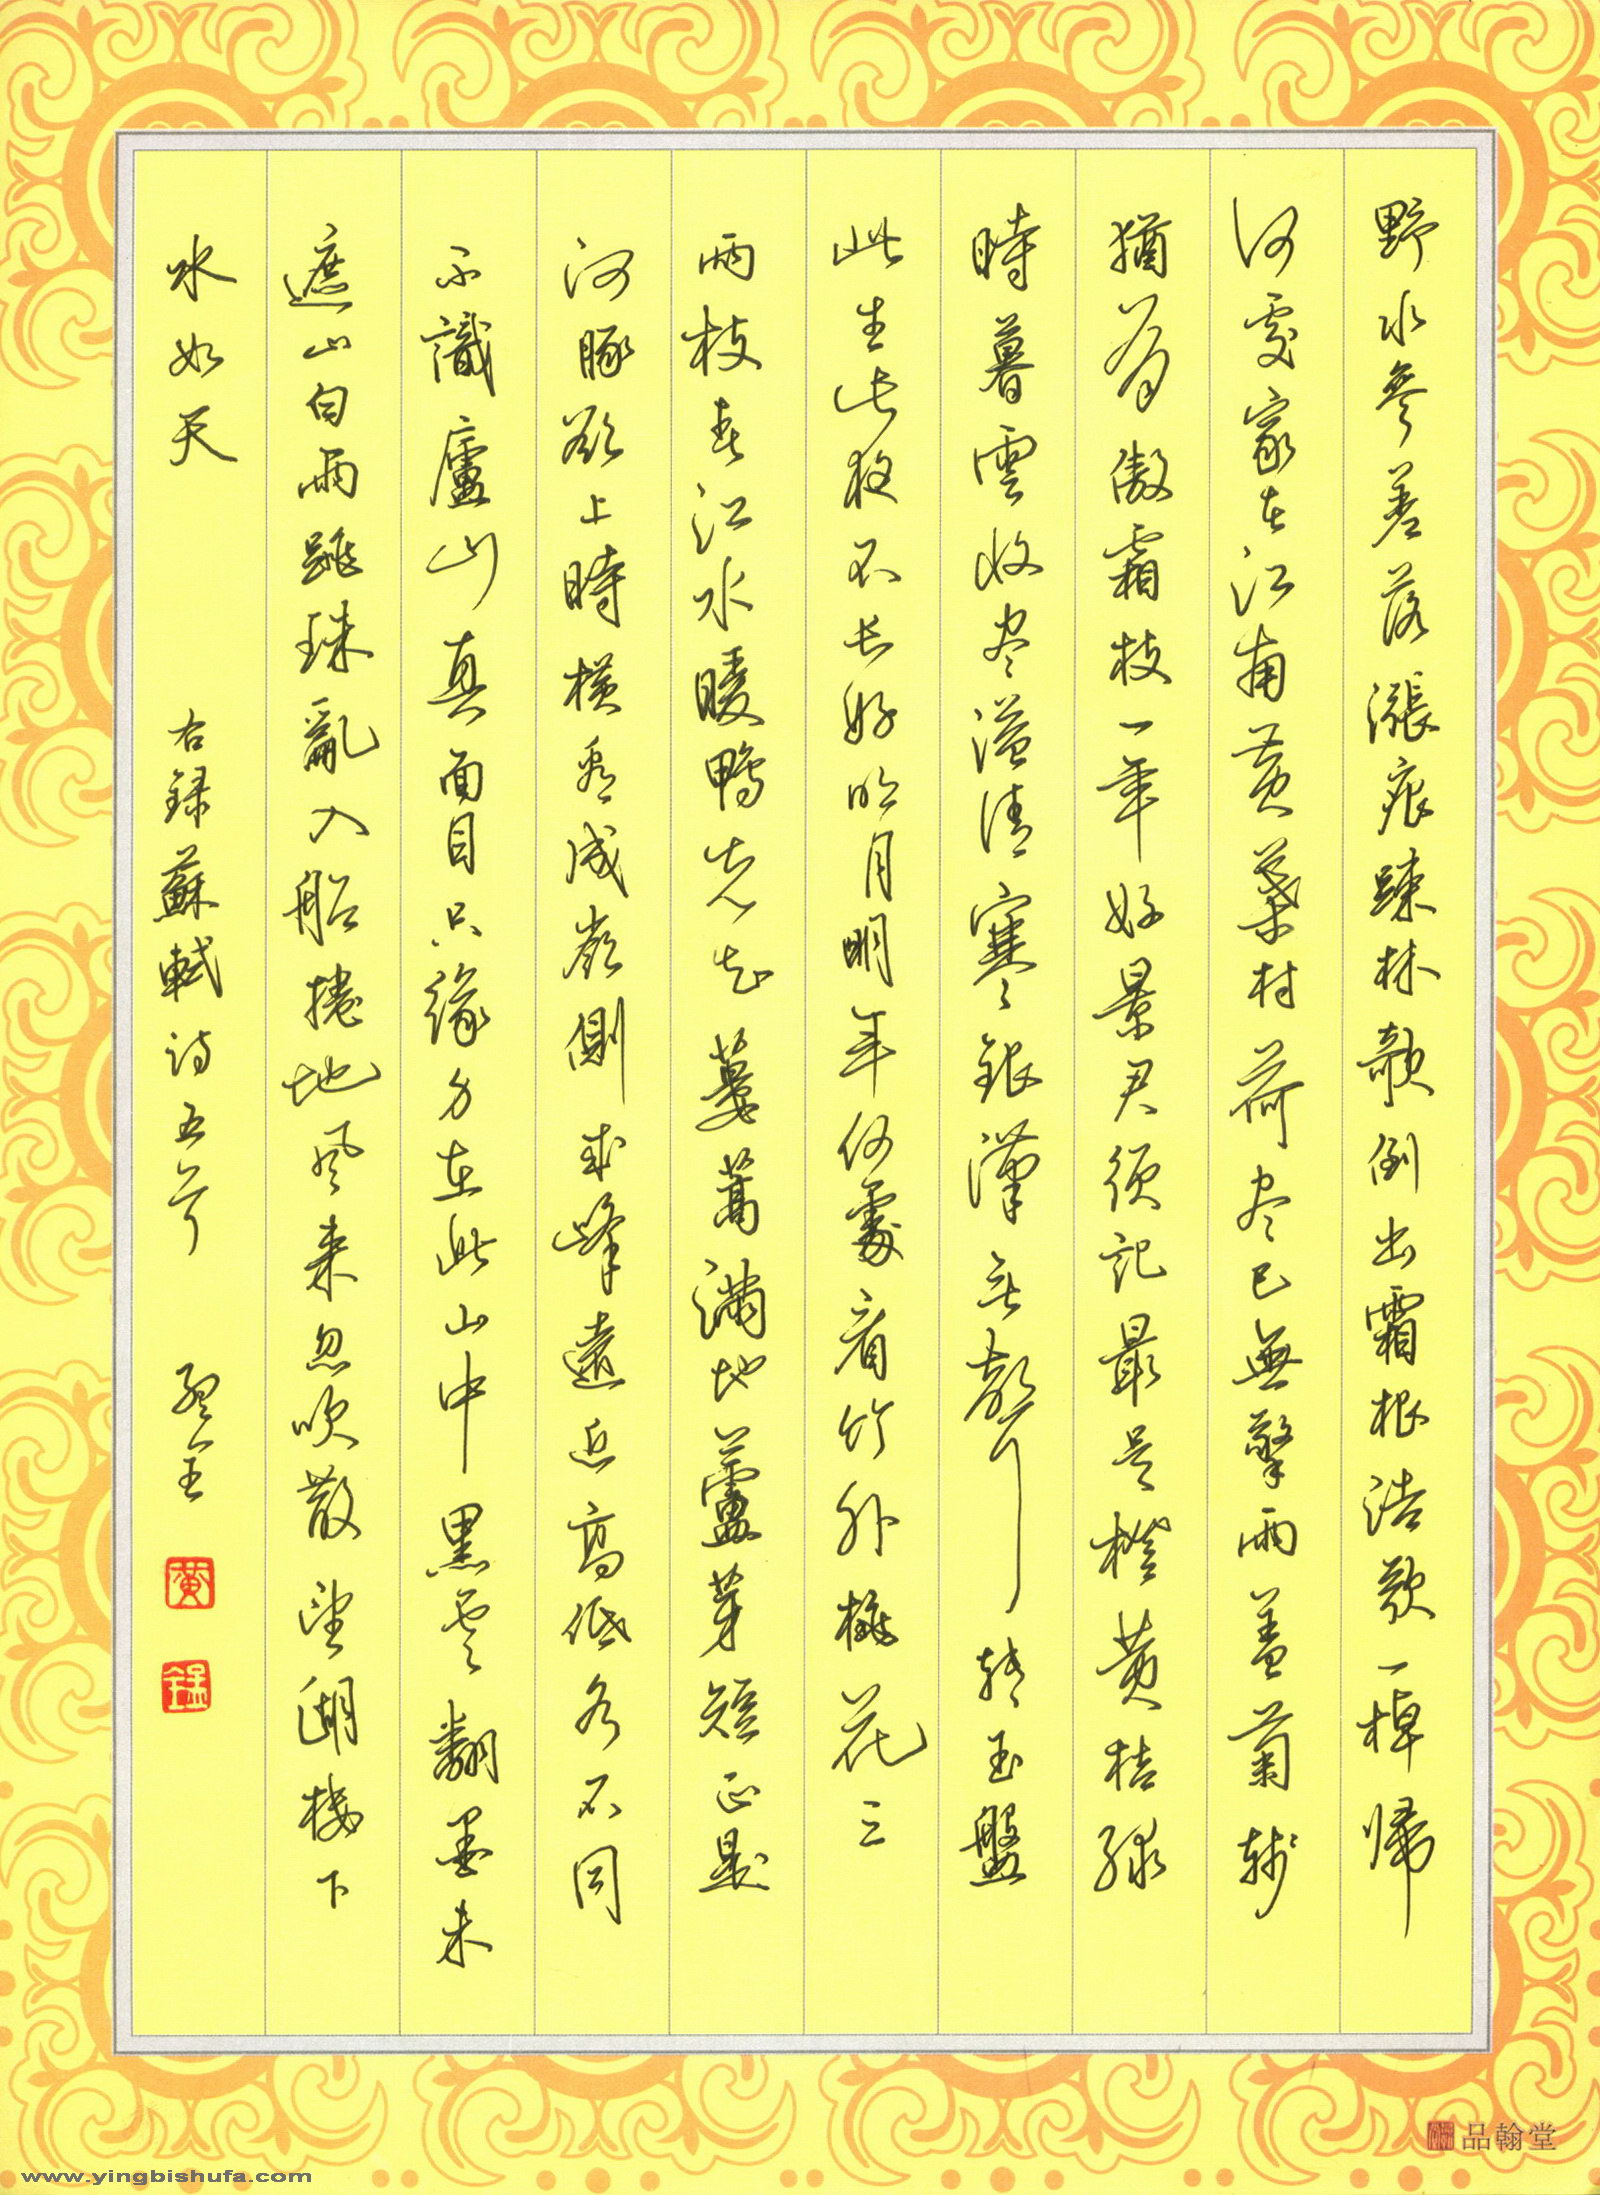 野水參差落漲痕疎林欹倒出霜根浩歌一棹歸
何處家在江南黃葉村荷尽已無擎雨蓋菊殘
猶有傲霜枝一年好景君須記最是橙黃桔綠
時暮雲收尽溢清寒銀漢無聲轉玉盤
此生此夜不長好明月明年何處看竹外桃花三
兩枝春江水暖鴨先知蔞蒿滿地蘆芽短正是
河豚欲上時橫看成嶺側成峰遠近高低各不同
不識廬山真面目只緣身在此山中黑雲翻墨未
遮山白雨跳珠亂入船捲地風來忽吹散望湖樓下
水如天
右錄蘇軾詩五首
黃
品翰堂
www.yingbishufa.com